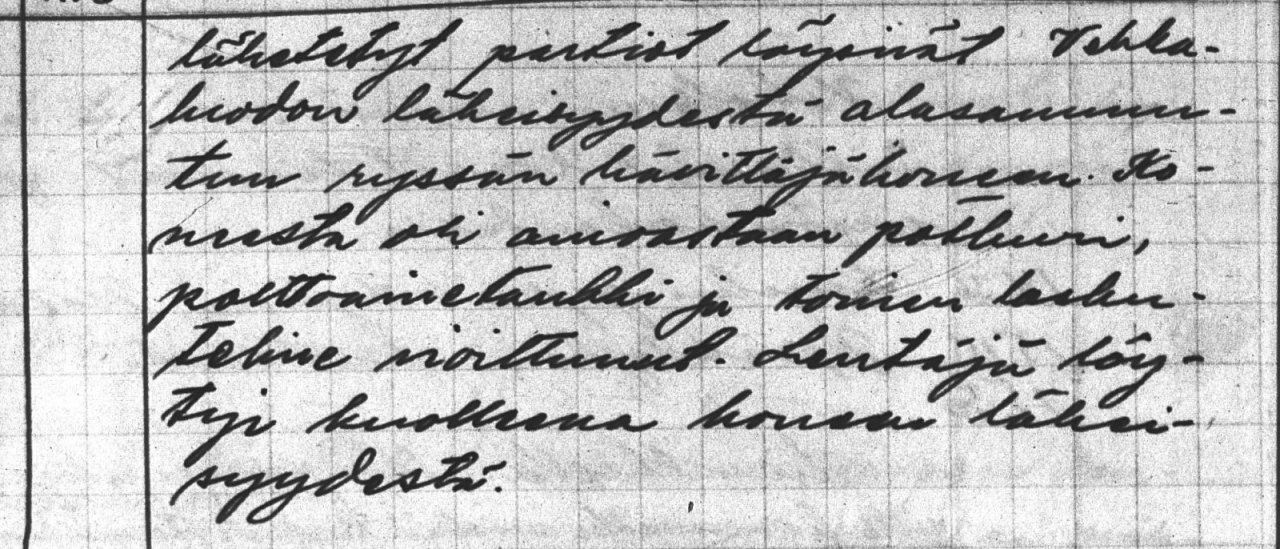 lähetetyt partiot löysivät Vehka-
luodon läheisyydestä alasammu-
tun ryssän hävittäjäkoneen. Ko-
neesta oli ainoastaan potkuri,
polttoainetankki ja toinen lasku-
teline vioittunut. Lentäjä löy-
tyi kuolleena koneen lähei-
syydestä.